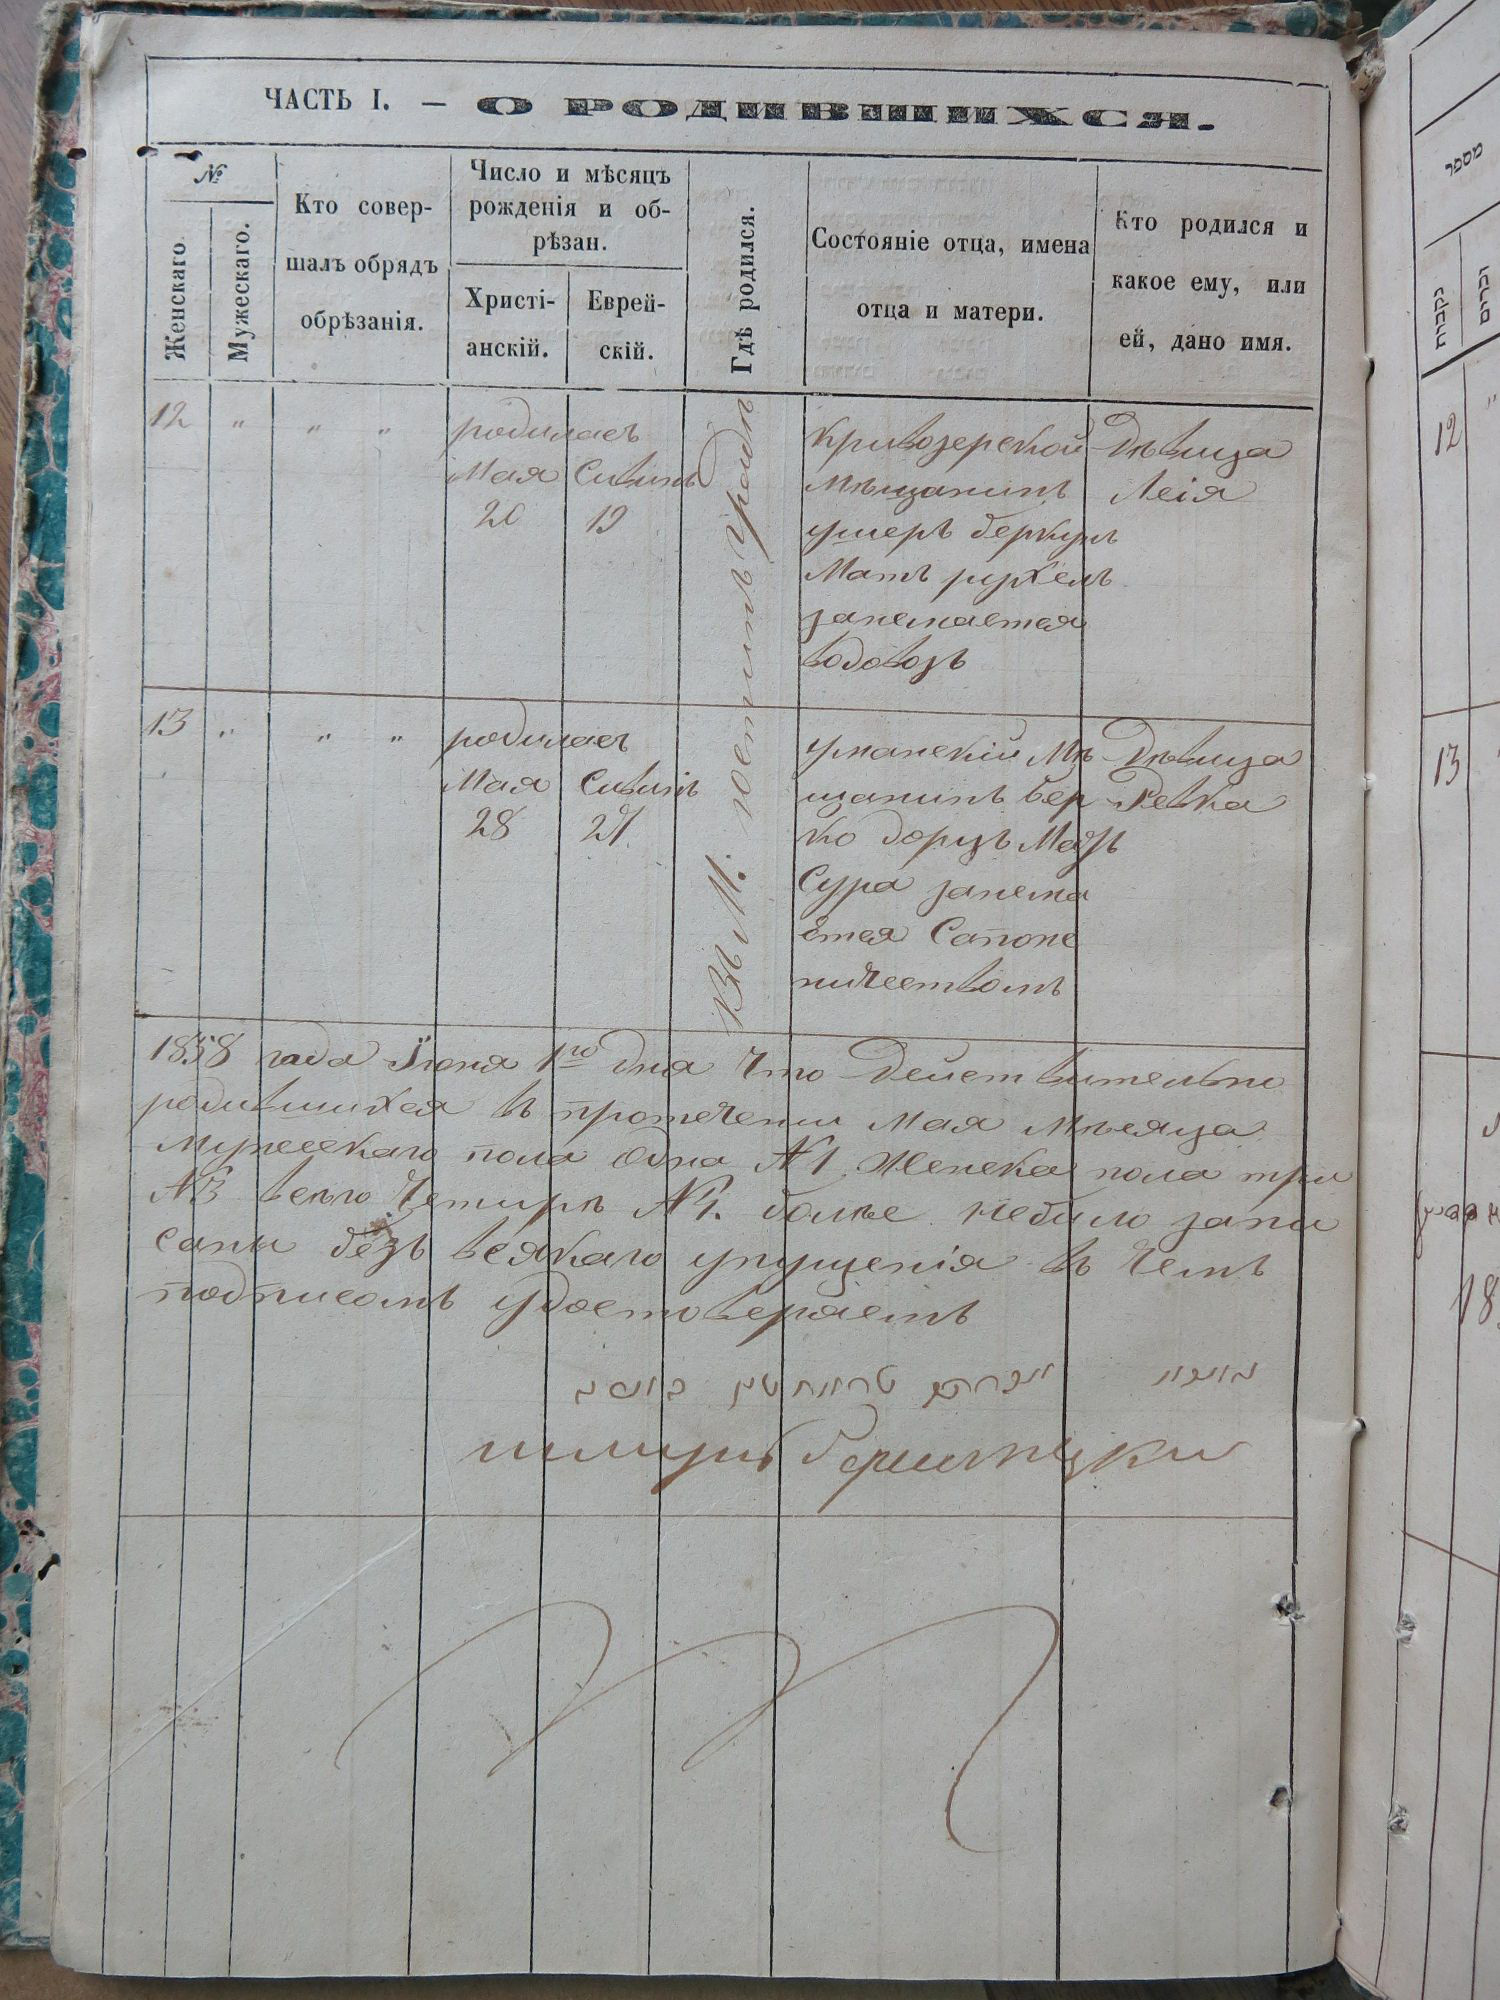 ЧАСТЬ I. — О РОДИВШИХСЯ.
№
Женскаго
Мужескаго.
Кто совер-
шалъ обрядъ
обрѣзанія.
Число и мѣсяцъ
рожденія и об-
рѣзан.
Христі-
анскій.
Еврей-
скій.
Гдѣ родился.
Состояніе отца, имена
отца и матери.
Кто родился и
какое ему, или
ей, дано имя.
12 " " "
родилась
Мая
20
Сивинъ
19
Кривозерской
Мѣщанинъ
ушеръ беркунъ
Мать рухель
занемается
водовозъ
Дѣвица
Леія
13 " " "
родилась
Мая
28
Сивинъ
27
уманскій Мѣ
щанинъ бер
ко борцъ Мать
Сура занема
ется Сапож
ничествомъ
Дѣвица
Ревка
Въ М.
1858 года Іюня 1го дня Что Действительно
родившихся въ протечении Мая Мѣсяца
Мужескаго пола Одна №1. Женска пола три
№3 всего Четирѣ №4. болѣе небило запи
сани безъ всякаго упущенія въ чемъ
подписомъ удостоверяемъ
מספר
נקבות
זכרים
12
13
18